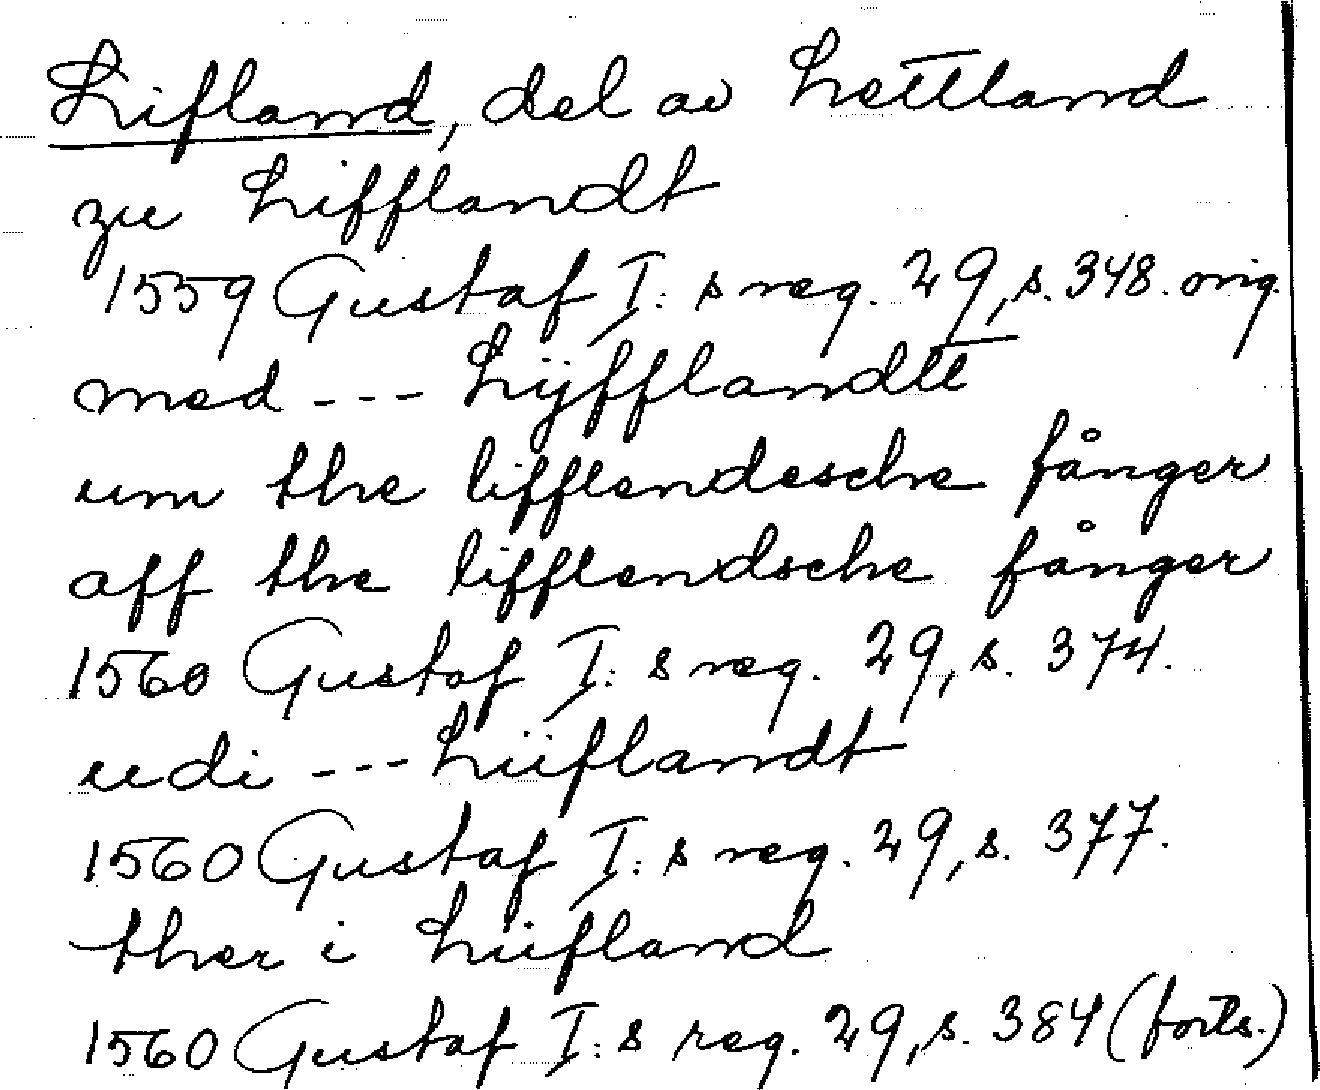 Lifland, del av Lettland
zu Lifflandt
1559 Gustaf I:s reg. 29, s. 348. orig.
med --- Lÿfflandtt
um the lifflendesche fånger
aff the lifflendsche fånger
1560 Gustaf I:s reg. 29, s. 374.
udi --- Liiflandt
1560 Gustaf I:s reg. 29, s. 377.
ther i Liifland
1560 Gustaf I:s reg. 29, s. 384 (forts.)